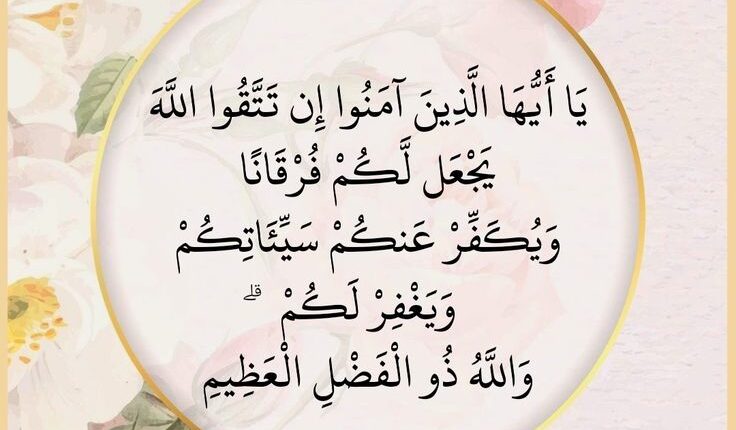 يَا أَيُّهَا الَّذِينَ آمَنُوا إِن تَتَّقُوا اللَّهَ
يَجْعَل لَّكُمْ فُرْقَانًا
وَيُكَفِّرْ عَنكُمْ سَيِّئَاتِكُمْ
وَيَغْفِرْ لَكُمْ ۗ
وَاللَّهُ ذُو الْفَضْلِ الْعَظِيمِ